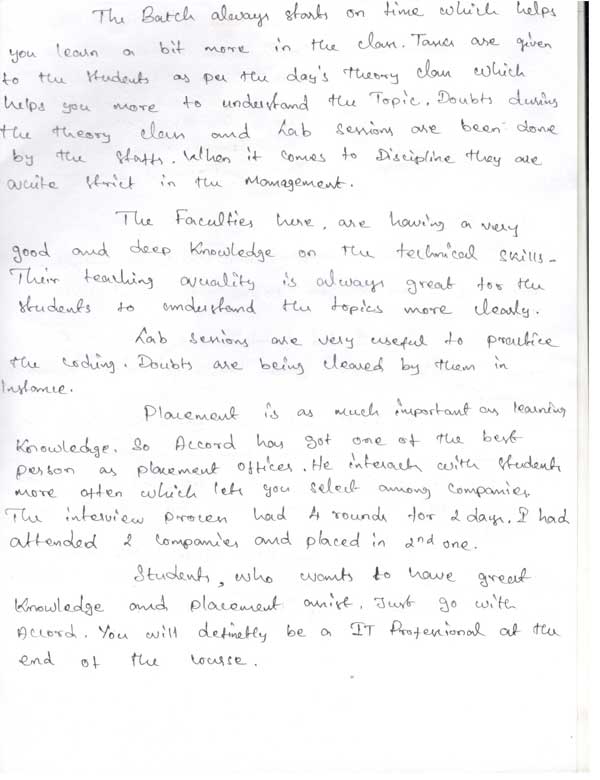 The Batch always starts on time which helps
you learn a bit more in the class. Tasks are given
to the students as per the day's theory class which
helps you more to understand the Topic. Doubts during
the theory class and Lab sessions are been done
by the Staffs. When it comes to Discipline they are
quite strict in the Management.
The Faculties here, are having a very
good and deep Knowledge on the technical skills.
Their teaching quality is always great for the
students to understand the topics more clearly.
Lab sessions are very useful to practice
the coding. Doubts are being cleared by them in
Instance.
Placement is as much important as learning
Knowledge. So Accord has got one of the best
person as placement officer. He interacts with students
more often which lets you select among companies.
The interview process had 4 rounds for 2 days. I had
attended 2 companies and placed in 2nd one.
Students, who wants to have great
Knowledge and placement assist. Just go with
Accord. You will definetly be a IT Professional at the
end of the course.